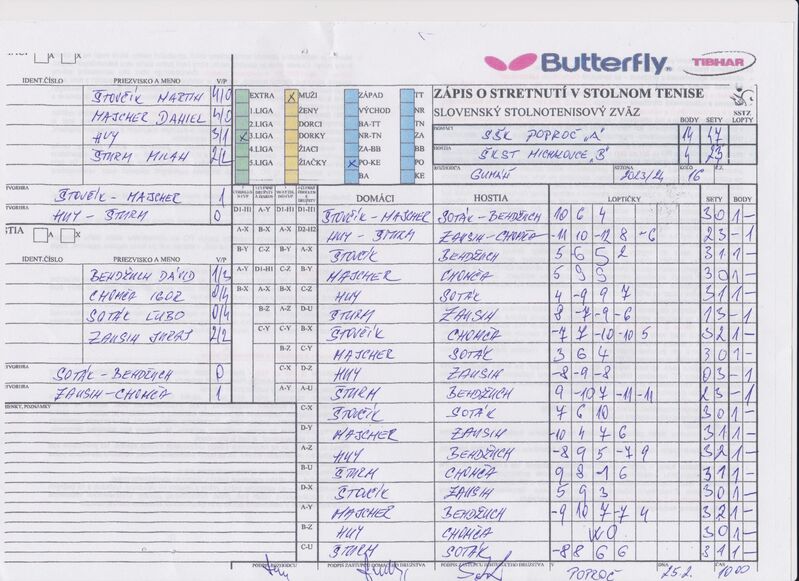 Butterfly
TIBHAR
A X
IDENT.ČÍSLO PRIEZVISKO A MENO V/P
ŠTOVČÍK MARTIN 4/0
MAJCHER DANIEL 4/0
HUY 3/1
ŠTURM MILAN 2/2
TVORHRA
ŠTOVČÍK - MAJCHER 1
HUY - ŠTURM 0
STIA A X
IDENT.ČÍSLO PRIEZVISKO A MENO V/P
BENDŽUCH DÁVID 1/3
CHOMČA IGOR 0/4
SOTÁK ĽUBO 0/4
ZAUSIH JURAJ 2/2
TVORHRA
SOTÁK - BENDŽUCH 0
ZAUSIH - CHOMČA 1
POZNÁMKY
EXTRA X MUŽI ZÁPAD TT
1.LIGA ŽENY VÝCHOD NR
2.LIGA DORCI BA-TT TN
X 3.LIGA DORKY NR-TN ZA
4.LIGA ŽIACI ZA-BB BB
5.LIGA ŽIAČKY X PO-KE PO
BA KE
ZÁPIS O STRETNUTÍ V STOLNOM TENISE
SLOVENSKÝ STOLNOTENISOVÝ ZVÄZ
SSTZ
BODY SETY LOPTY
DOMÁCI SŠK POPROČ "A" 14 47
HOSTIA ŠKST MICHALOVCE "B" 4 23
ROZHODCA SEZÓNA 2023/24 KOLO 16
DOMÁCI HOSTIA LOPTIČKY SETY BODY
D1-H1 ŠTOVČÍK - MAJCHER SOTÁK - BENDŽUCH 10 6 4 3 0 1 -
D2-H2 HUY - ŠTURM ZAUSIH - CHOMČA -11 10 -12 8 -6 2 3 - 1
A-X ŠTOVČÍK BENDŽUCH 5 6 5 2 3 1 1 -
B-Y MAJCHER CHOMČA 5 9 9 3 0 1 -
C-Z HUY SOTÁK 4 -9 9 7 3 1 1 -
D-U ŠTURM ZAUSIH 8 -7 -9 -6 1 3 - 1
B-X ŠTOVČÍK CHOMČA -7 7 -10 -10 5 3 2 1 -
C-Y MAJCHER SOTÁK 3 6 4 3 0 1 -
D-Z HUY ZAUSIH -8 -9 -8 0 3 - 1
A-U ŠTURM BENDŽUCH 9 -10 7 -11 -11 2 3 - 1
C-X ŠTOVČÍK SOTÁK 7 6 10 3 0 1 -
D-Y MAJCHER ZAUSIH -10 4 7 6 3 1 1 -
A-Z HUY BENDŽUCH -8 9 5 -7 9 3 2 1 -
B-U ŠTURM CHOMČA 9 8 -1 6 3 1 1 -
D-X ŠTOVČÍK ZAUSIH 5 9 3 3 0 1 -
A-Y MAJCHER BENDŽUCH -9 10 7 -7 4 3 2 1 -
B-Z HUY CHOMČA WO 3 0 1 -
C-U ŠTURM SOTÁK -8 8 6 6 3 1 1 -
PODPIS ROZHODCU PODPIS ZÁSTUPCU DOMÁCEHO DRUŽSTVA PODPIS ZÁSTUPCU HOSŤUJÚCEHO DRUŽSTVA V POPROČ DŇA 25.2. ČAS 10.00